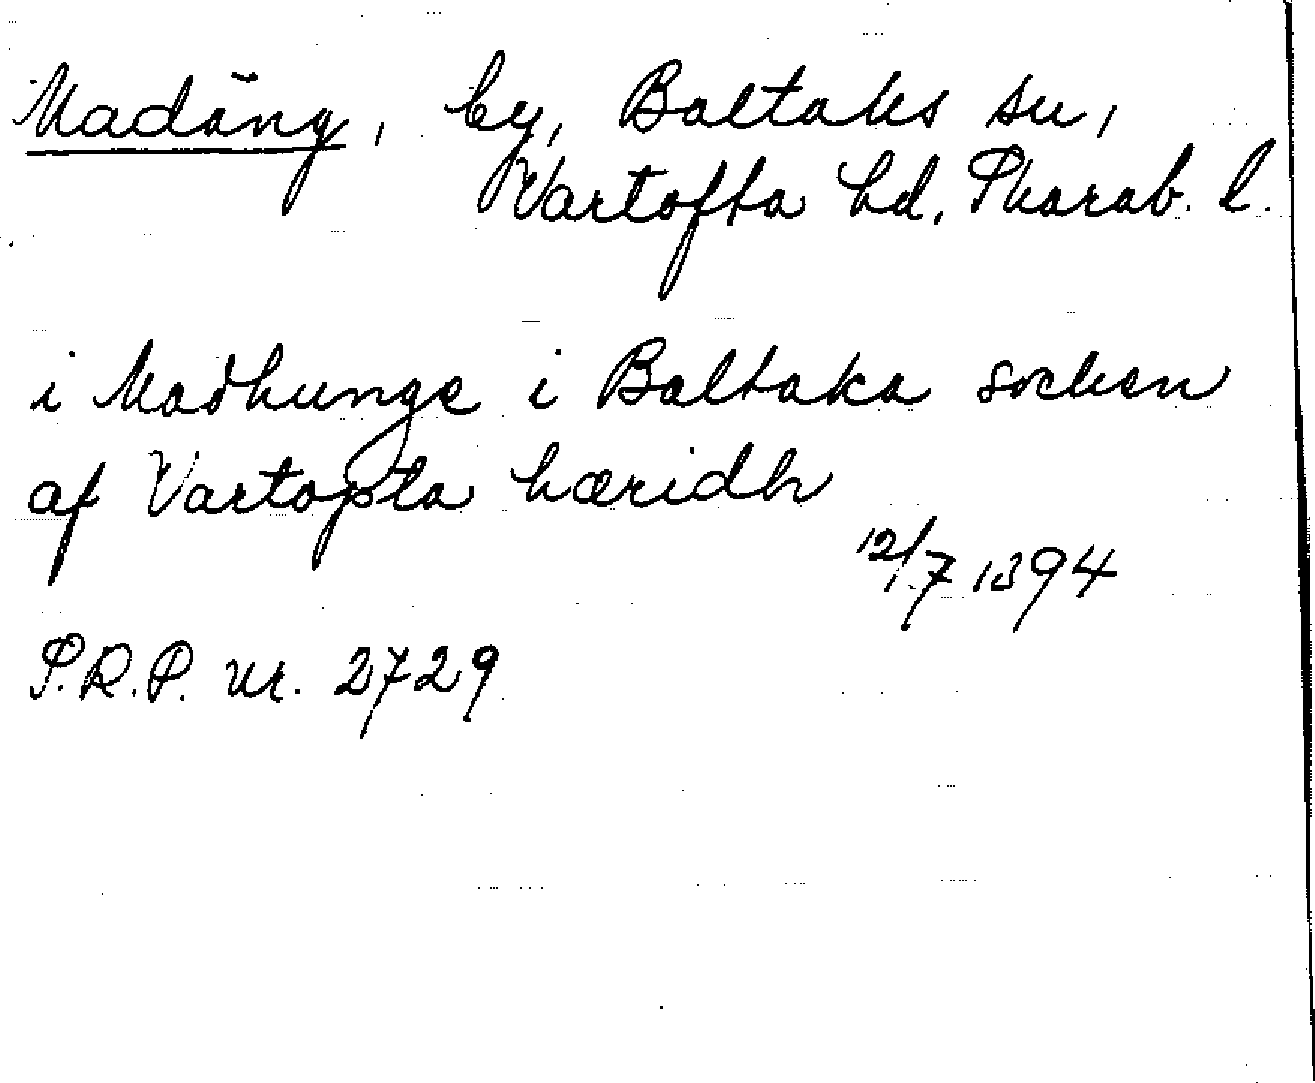 Madäng, by, Baltaks sn,
Vartofta hd, Skarab. l.
i Madhunge i Baltaka socken
af Vartopta hæridh
12/7 1394
S.R.P. nr. 2729